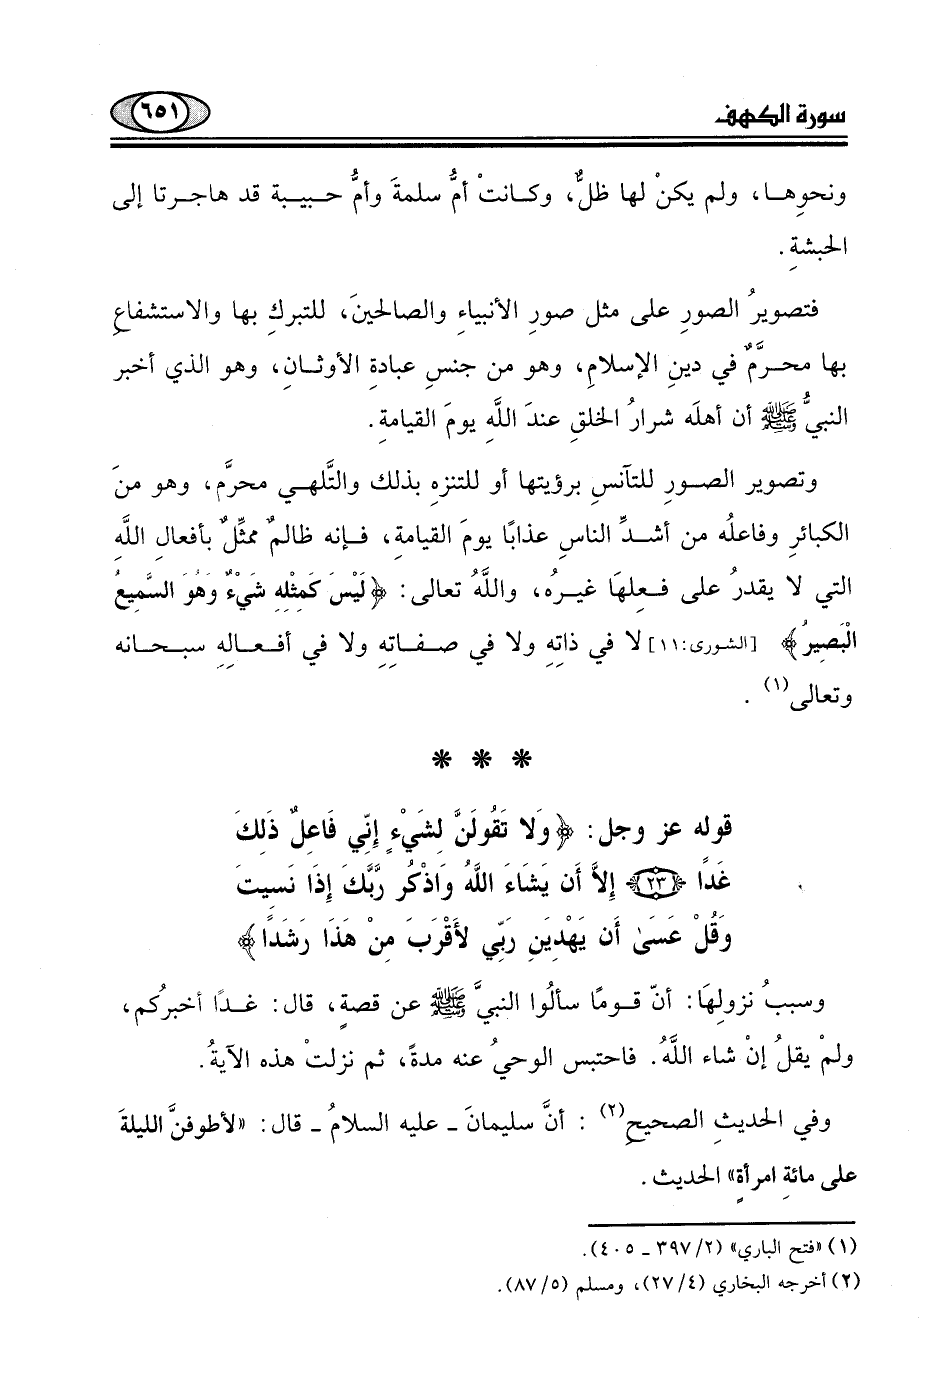 سورة الكهف ٦٥١
ونحوِهـا، ولم يكنْ لها ظلٌّ، وكـانتْ أمُّ سلمةَ وأمُّ حـبيـبة قد هاجـرتا إلى
الحبشةِ .
فتصويرُ الصورِ على مثل صورِ الأنبياءِ والصالحينَ، للتبركِ بها والاستشفاعِ
بها محـرَّمٌ في دينِ الإسلامِ، وهو من جنسِ عبادةِ الأوثـانِ، وهو الذي أخبر
النبيُّ ﷺ أن أهلَه شرارُ الخلقِ عندَ اللَّهِ يومَ القيامةِ.
وتصوير الصـورِ للتآنسِ برؤيتها أو للتنزهِ بذلك والتَّلهـي محرَّم، وهو منَ
الكبائرِ وفاعلُه من أشـدِّ الناسِ عذابًا يومَ القيامةِ، فـإنه ظالمٌ ممثِّلٌ بأفعالِ اللَّهِ
التي لا يقدرُ على فـعلِهَا غيـرهُ، واللَّهُ تعالى: ﴿لَيْسَ كَمِثْلِهِ شَيْءٌ وَهُوَ السَّمِيعُ
الْبَصِيرُ﴾ [الشورى:١١] لا في ذاتِهِ ولا في صفـاتِهِ ولا في أفـعـالِهِ سبـحـانه
وتعالى(١) .
* * *
قوله عز وجل: ﴿وَلا تَقُولَنَّ لِشَيْءٍ إِنِّي فَاعِلٌ ذَلِكَ
غَدًا ﴿٢٣﴾ إِلاَّ أَن يَشَاءَ اللَّهُ وَاذْكُر رَّبَّكَ إِذَا نَسِيتَ
وَقُلْ عَسَىٰ أَن يَهْدِيَنِ رَبِّي لأَقْرَبَ مِنْ هَذَا رَشَدًا﴾
وسببُ نزولِهَا: أنّ قـومًا سألُوا النبيَّ ﷺ عن قصةٍ، قال: غـدًا أخبرُكم،
ولمْ يقلُ إنْ شاء اللَّهُ. فاحتبس الوحيُ عنه مدةً، ثم نزلتْ هذه الآيةُ.
وفي الحديثِ الصحيحِ(٢) : أنَّ سليمانَ ـ عليه السلامُ ـ قال: «لأطوفنَّ الليلةَ
على مائةِ امرأةٍ» الحديث .
(١) «فتح الباري» (٣٩٧/٢ ـ ٤٠٥).
(٢) أخرجه البخاري (٢٧/٤)، ومسلم (٨٧/٥).